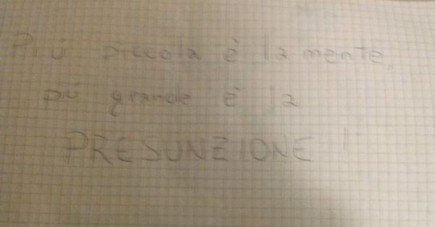 Più piccola è la mente,
più grande è la
PRESUNZIONE!